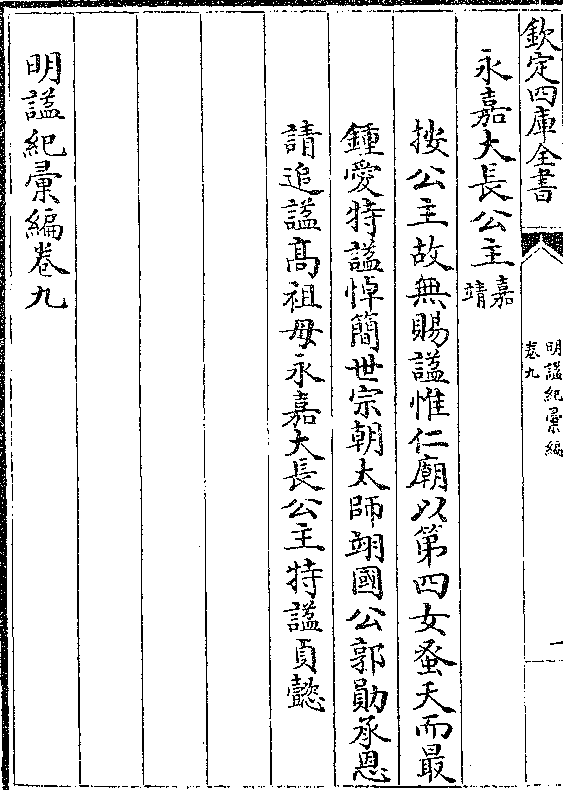 欽定四庫全書
明諡紀彙編
卷九
永嘉大長公主嘉靖
按公主故無賜諡惟仁廟以第四女蚤夭而最
鍾愛特諡悼簡世宗朝太師翊國公郭勛承恩
請追諡髙祖母永嘉大長公主特諡貞懿
明諡紀彙編卷九